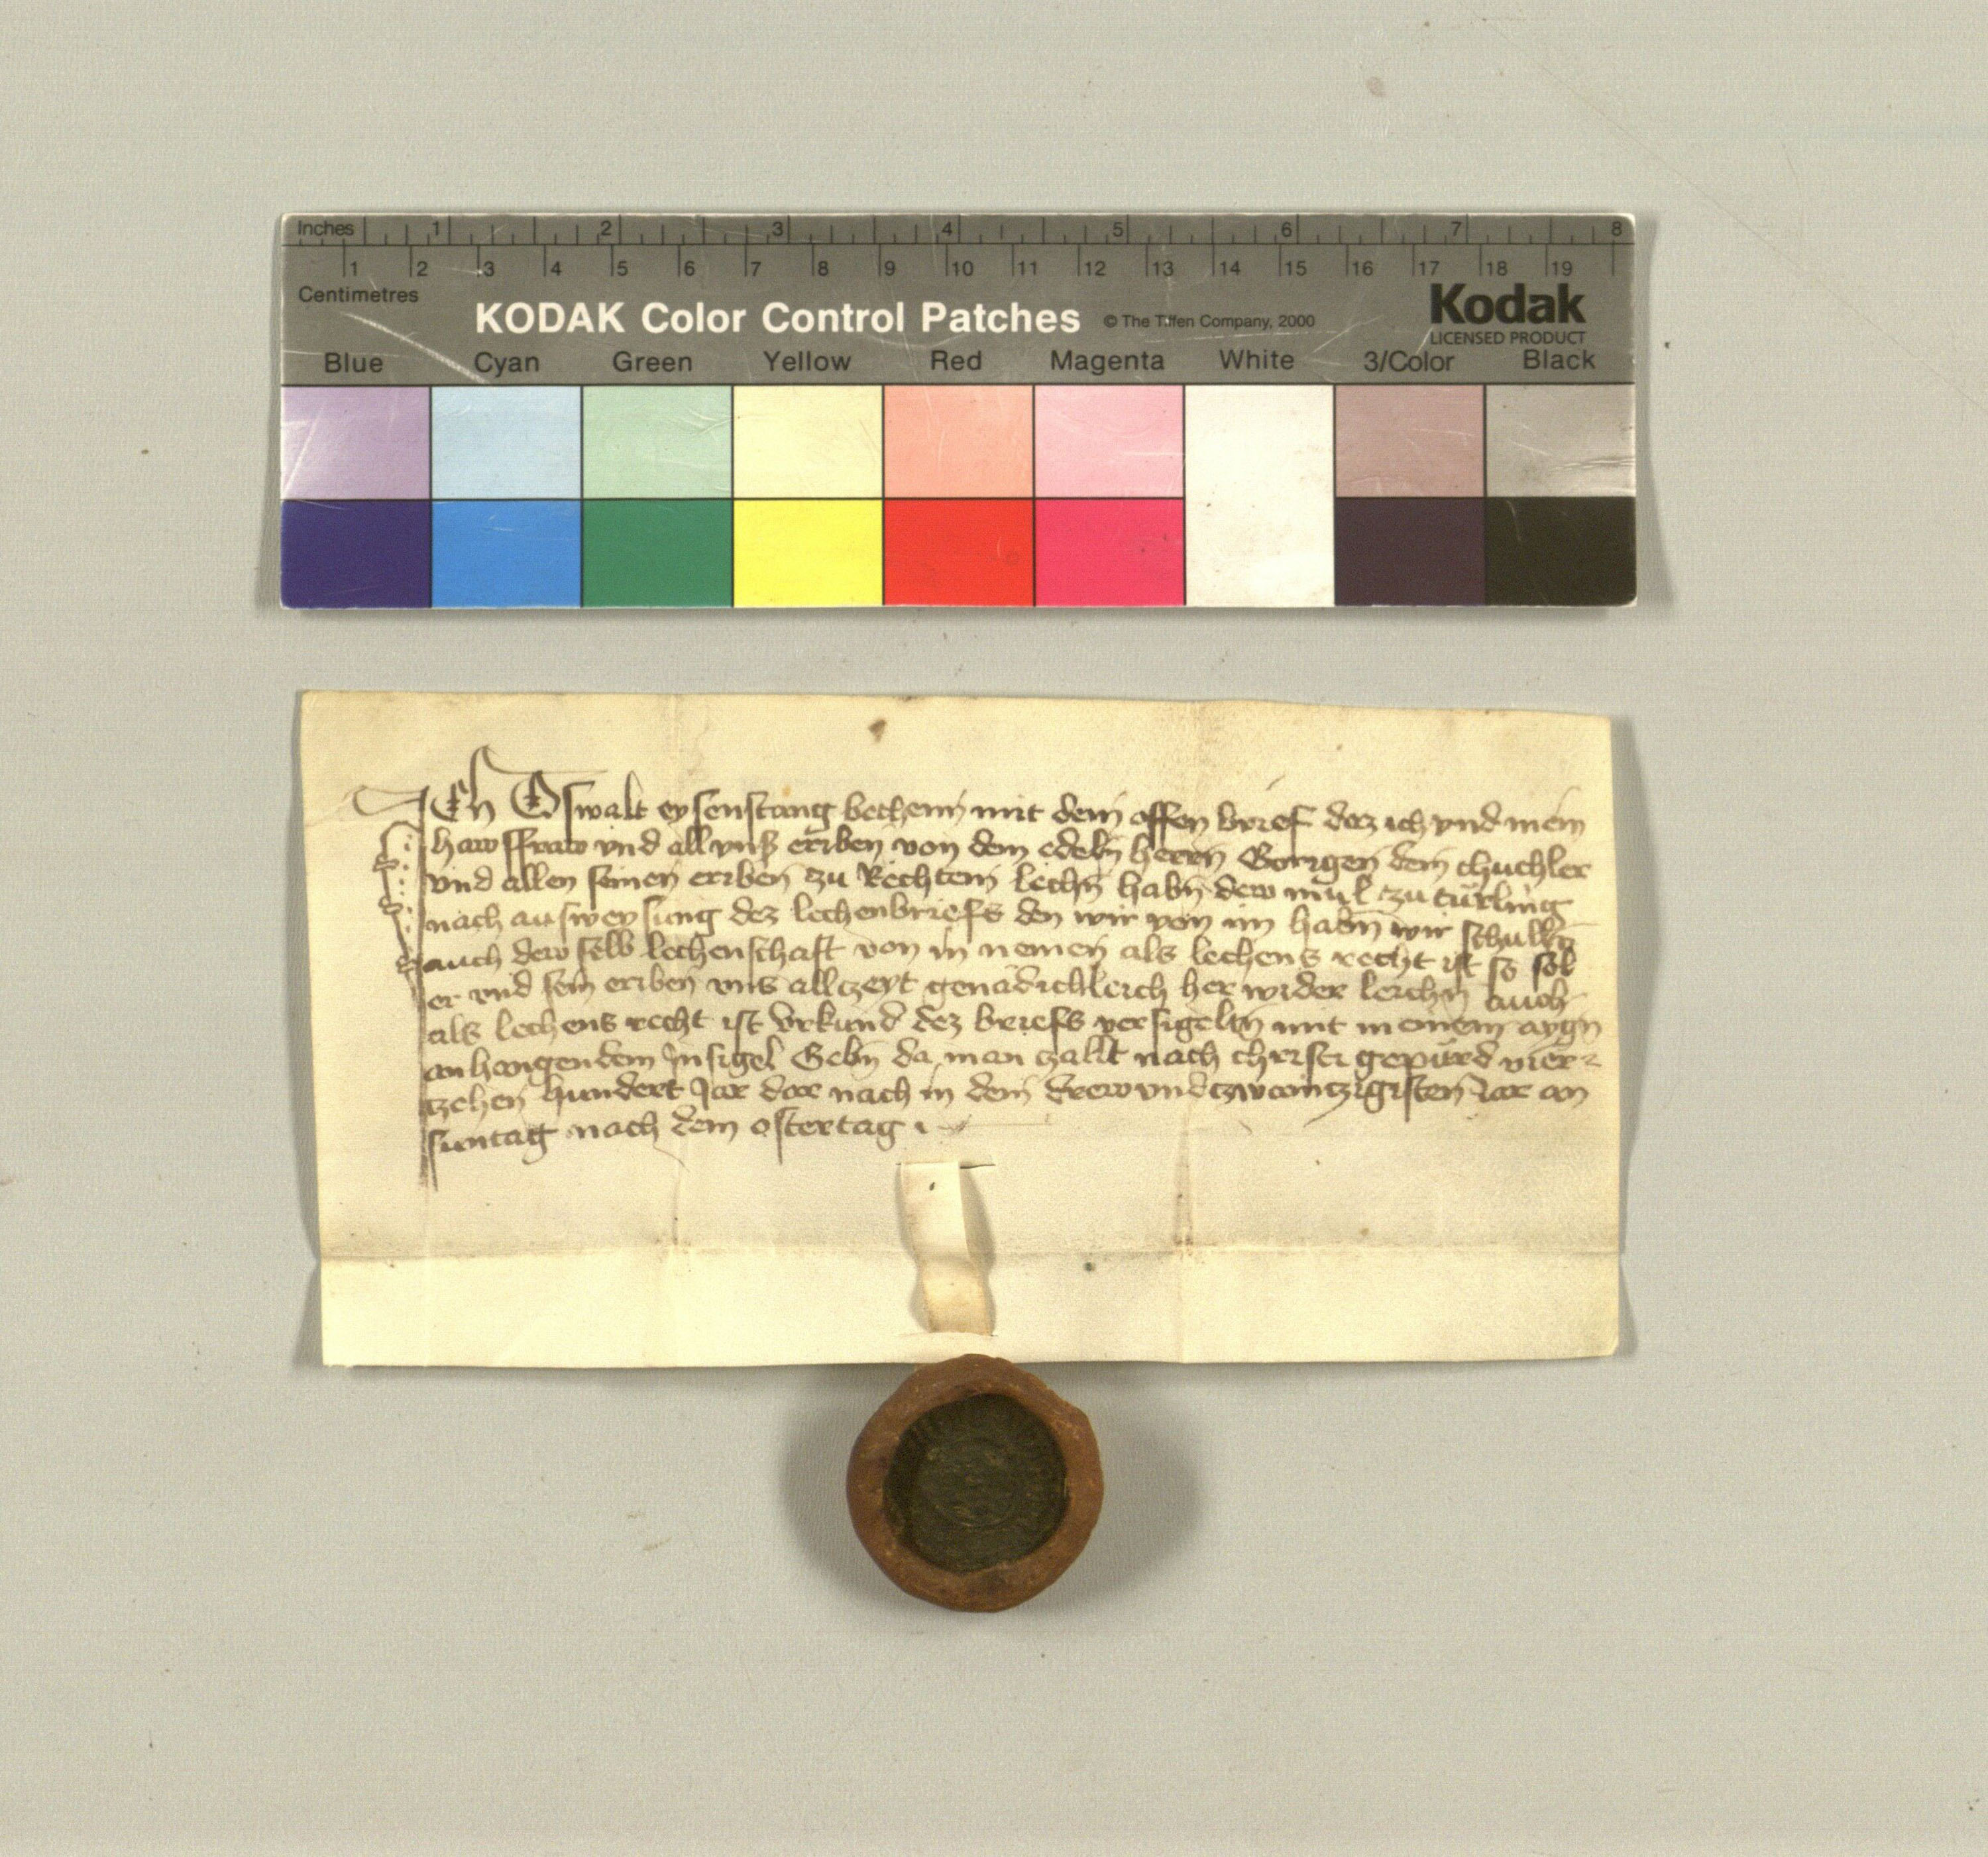 Inches 1 2 3 4 5 6 7 8
1 2 3 4 5 6 7 8 9 10 11 12 13 14 15 16 17 18 19
Centimetres
KODAK Color Control Patches © The Tiffen Company, 2000 Kodak
LICENSED PRODUCT
Blue Cyan Green Yellow Red Magenta White 3/Color Black
Ich Oswalt eysenstang bechenn mit dem offen brief daz ich vnd mein
hawsfraw vnd all vnß eriben von dem edeln herrn Gorigen dem chuchler
vnd allen seinen eriben zu Rechtem lechn habn dew mül zu türling
nach ausweysung dez lechenbriefs den wir von im habn wir schulln
auch dew selb lechenschaft von in nemen als lechens recht ist so sol
er vnd sein eriben vns allczeyt genädichleich her wider leichn auch
als lechens recht ist Vrkund dez briefs versigeltn mit meinem aygn
anhangendem Insigel Gebn da man zallt nach christi gepürd vier-
czehen hundert Jar dar nach in dem drew vnd czwainczigisten Jar an
suntag nach dem ostertag